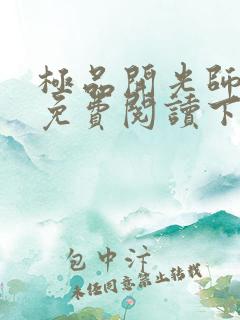 極品開光師
免費閱讀下
包中汴
未經同意禁止轉載